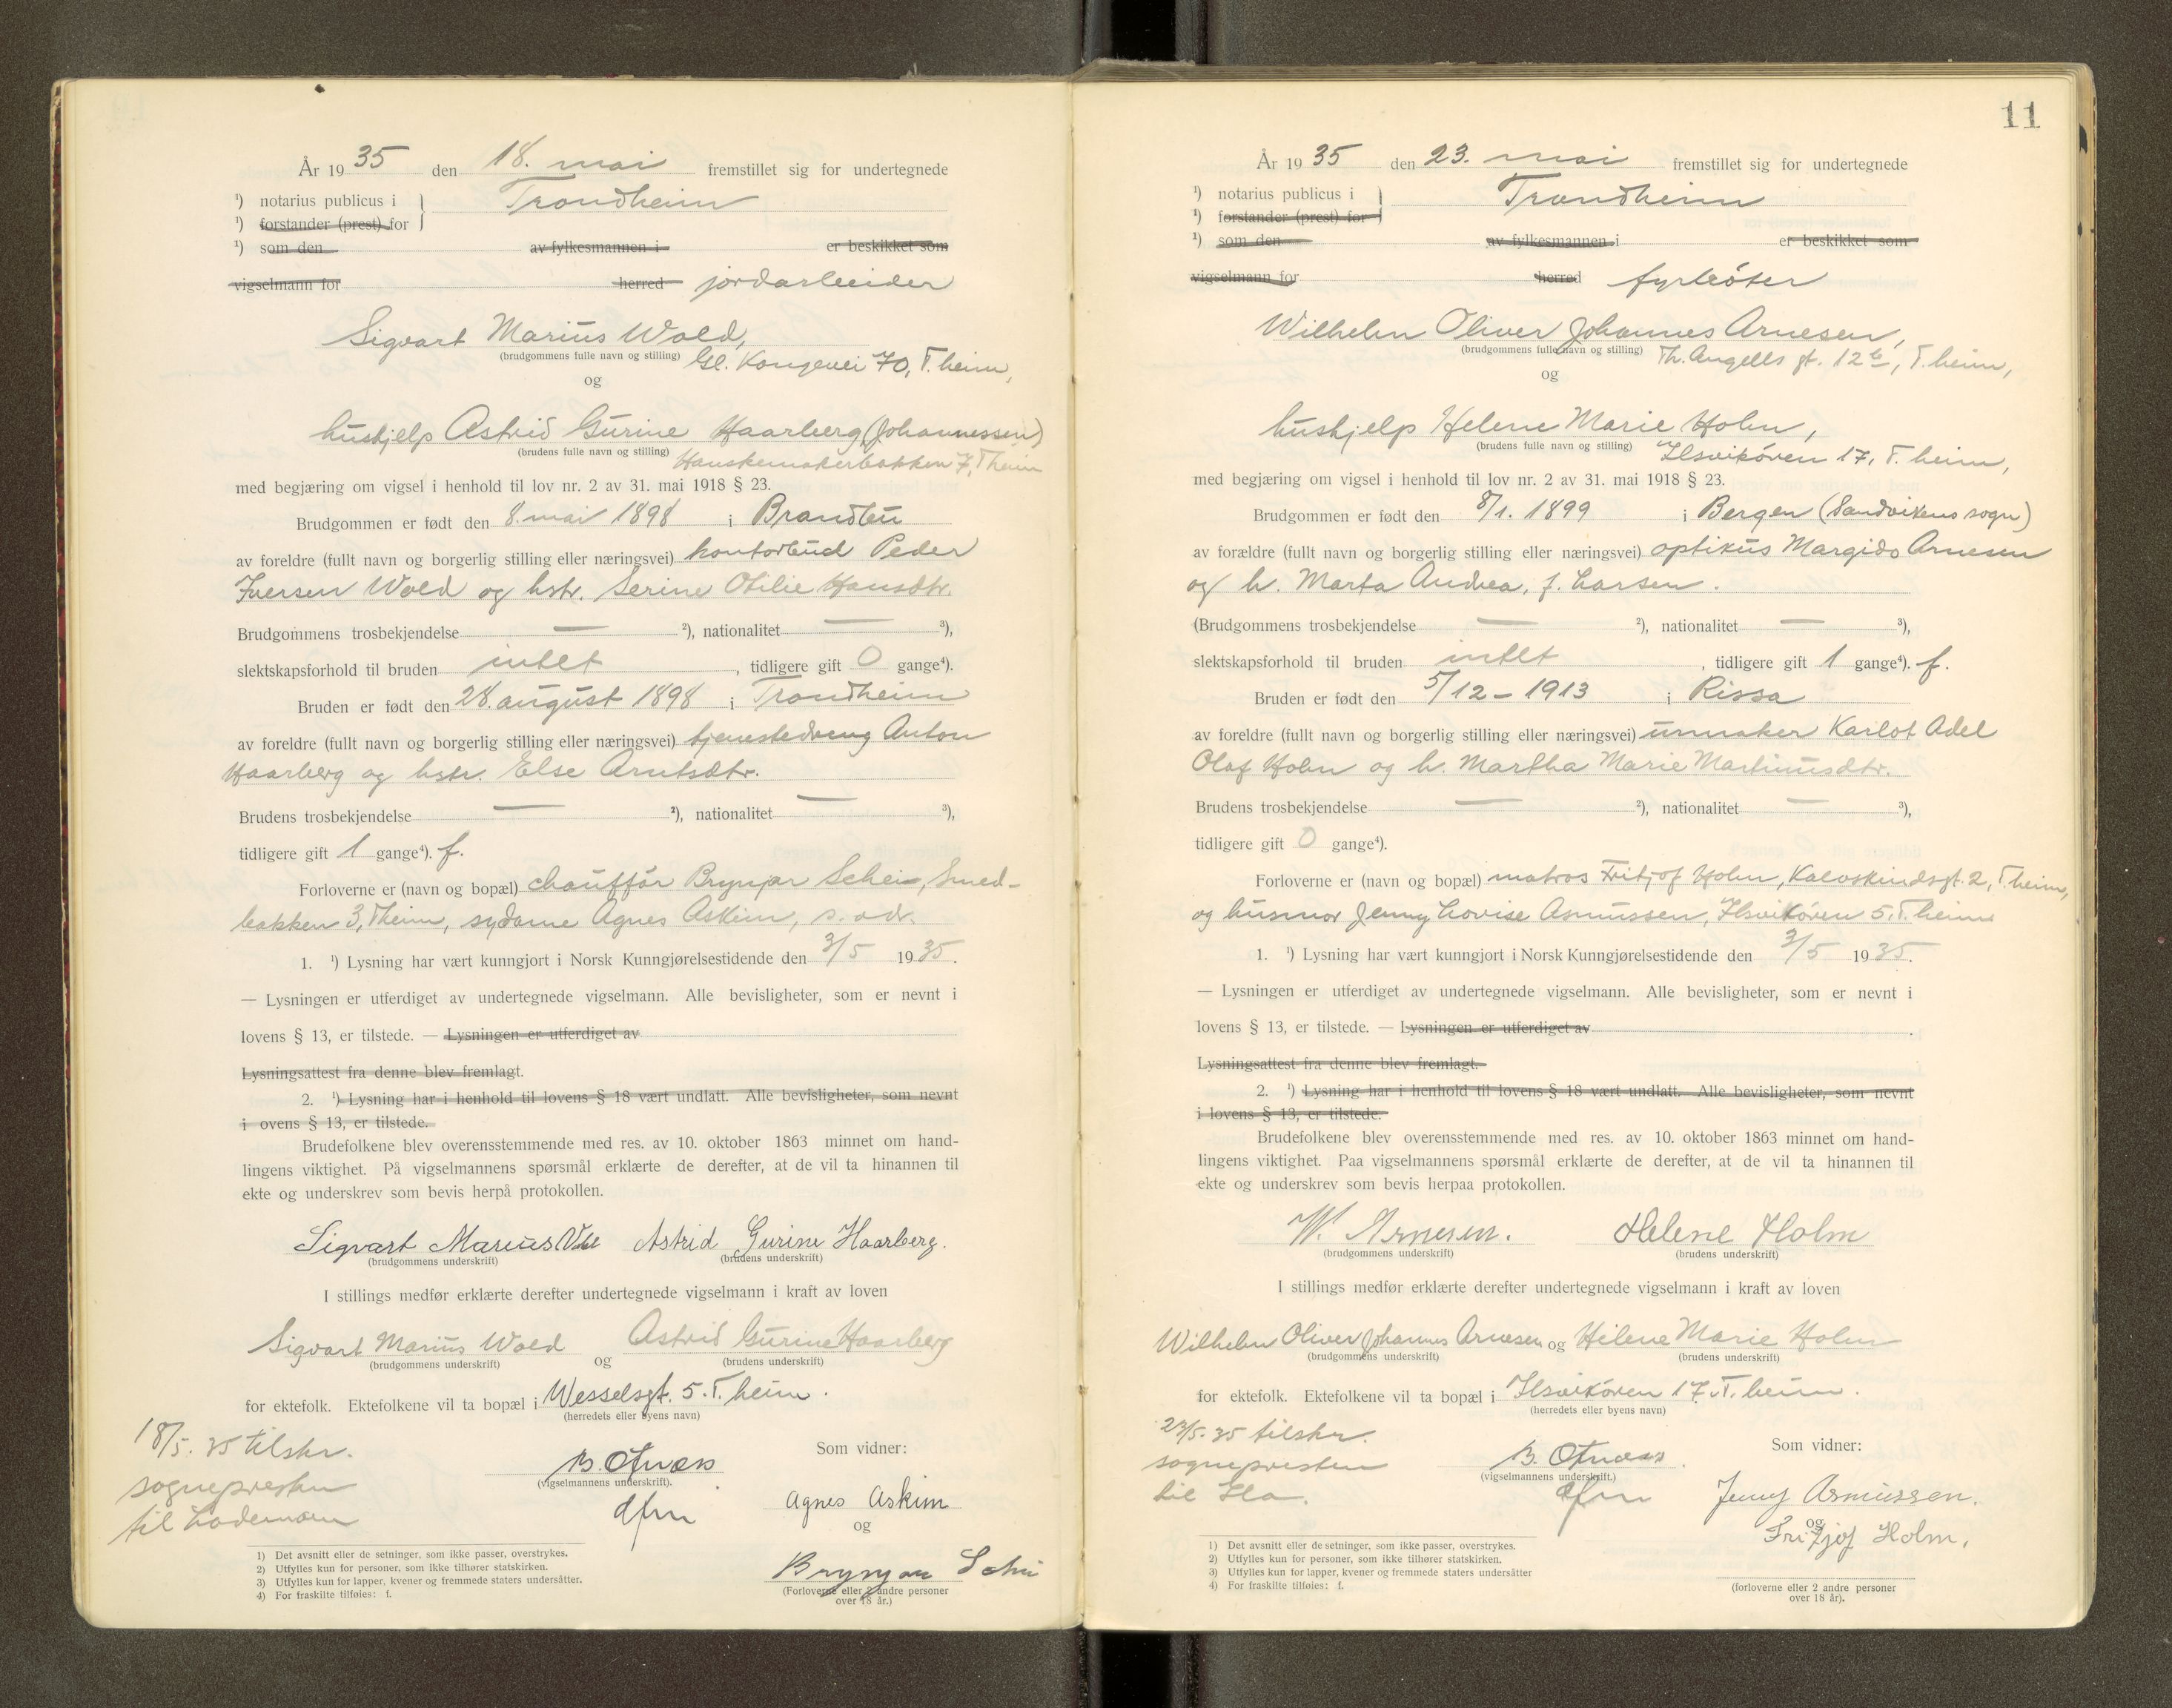 År 1935 den 18. mai fremstillet sig for undertegnede
¹) notarius publicus i } Trondheim
¹) forstander (prest) for
¹) som den av fylkesmannen i er beskikket som
vigselmann for herred jordarbeider
Sigvart Marius Wold,
(brudgommens fulle navn og stilling) Gl. Kongevei 70, T.heim,
og
hushjelp Astrid Gurine Haarberg (Johannessen)
(brudens fulle navn og stilling) Hanskemakerbakken 7, T.heim
med begjæring om vigsel i henhold til lov nr. 2 av 31. mai 1918 § 23.
Brudgommen er født den 8. mai 1898 i Brandbu
av foreldre (fullt navn og borgerlig stilling eller næringsvei) kontorbud Peder
Iversen Wold og hstr. Serine Otilie Hansdtr.
Brudgommens trosbekjendelse — ²), nationalitet — ³),
slektskapsforhold til bruden intet, tidligere gift 0 gange⁴).
Bruden er født den 28. august 1898 i Trondheim
av foreldre (fullt navn og borgerlig stilling eller næringsvei) tjenestedreng Anton
Haarberg og hstr. Else Arntsdtr.
Brudens trosbekjendelse — ²), nationalitet — ³),
tidligere gift 1 gange⁴). f.
Forloverne er (navn og bopæl) chauffør Brynjar Schei, Smed-
bakken 3, T.heim, sydame Agnes Askim, s. adr.
1. ¹) Lysning har vært kunngjort i Norsk Kunngjørelsestidende den 3/5 1935.
— Lysningen er utferdiget av undertegnede vigselmann. Alle bevisligheter, som er nevnt i
lovens § 13, er tilstede. — Lysningen er utferdiget av
Lysningsattest fra denne blev fremlagt.
2. ¹) Lysning har i henhold til lovens § 18 vært undlatt. Alle bevisligheter, som nevnt
i ovens § 13, er tilstede.
Brudefolkene blev overensstemmende med res. av 10. oktober 1863 minnet om hand-
lingens viktighet. På vigselmannens spørsmål erklærte de derefter, at de vil ta hinannen til
ekte og underskrev som bevis herpå protokollen.
Sigvart Marius Wold Astrid Gurine Haarberg.
(brudgommens underskrift) (brudens underskrift)
I stillings medfør erklærte derefter undertegnede vigselmann i kraft av loven
Sigvart Marius Wold og Astrid Gurine Haarberg
(brudgommens underskrift) (brudens underskrift)
for ektefolk. Ektefolkene vil ta bopæl i Wesselsgt. 5. T.heim.
(herredets eller byens navn)
18/5. 35 tilskr.
sognepresten
til Lademoen
B. Otnæss
(vigselmannens underskrift).
dfm
Som vidner:
Agnes Askim
og
Brynjar Schei
(Forloverne eller 2 andre personer
over 18 år.)
1) Det avsnitt eller de setninger, som ikke passer, overstrykes.
2) Utfylles kun for personer, som ikke tilhører statskirken.
3) Utfylles kun for lapper, kvener og fremmede staters undersåtter.
4) For fraskilte tilføies: f.
11
År 1935 den 23. mai fremstillet sig for undertegnede
¹) notarius publicus i } Trondheim
¹) forstander (prest) for
¹) som den av fylkesmannen i er beskikket som
vigselmann for herred fyrbøter
Wilhelm Oliver Johannes Arnesen,
(brudgommens fulle navn og stilling) Th. Angells gt. 12b, T.heim,
og
hushjelp Helene Marie Holm,
(brudens fulle navn og stilling) Ilsvikøren 17, T.heim,
med begjæring om vigsel i henhold til lov nr. 2 av 31. mai 1918 § 23.
Brudgommen er født den 8/1. 1899 i Bergen (Sandvikens sogn)
av forældre (fullt navn og borgerlig stilling eller næringsvei) optikus Margido Arnesen
og h. Marta Andrea, f. Larsen.
(Brudgommens trosbekjendelse — ²), nationalitet — ³),
slektskapsforhold til bruden intet, tidligere gift 1 gange⁴). f.
Bruden er født den 5/12 - 1913 i Rissa
av foreldre (fullt navn og borgerlig stilling eller næringsvei) urmaker Karlot Adel
Olaf Holm og h. Martha Marie Martinusdtr.
Brudens trosbekjendelse — ²), nationalitet — ³),
tidligere gift 0 gange⁴).
Forloverne er (navn og bopæl) matros Fritjof Holm, Kalvskindsgt. 2, T.heim,
og husmor Jenny Lovise Asmussen, Ilsvikøren 5, T.heim
1. ¹) Lysning har vært kunngjort i Norsk Kunngjørelsestidende den 3/5 1935.
— Lysningen er utferdiget av undertegnede vigselmann. Alle bevisligheter, som er nevnt i
lovens § 13, er tilstede. — Lysningen er utferdiget av
Lysningsattest fra denne blev fremlagt.
2. ¹) Lysning har i henhold til lovens § 18 vært undlatt. Alle bevisligheter, som nevnt
i lovens § 13, er tilstede.
Brudefolkene blev overensstemmende med res. av 10. oktober 1863 minnet om hand-
lingens viktighet. Paa vigselmannens spørsmål erklærte de derefter, at de vil ta hinannen til
ekte og underskrev som bevis herpaa protokollen.
W. Arnesen. Helene Holm
(brudgommens underskrift) (brudens underskrift)
I stillings medfør erklærte derefter undertegnede vigselmann i kraft av loven
Wilhelm Oliver Johannes Arnesen og Helene Marie Holm
(brudgommens underskrift) (brudens underskrift)
for ektefolk. Ektefolkene vil ta bopæl i Ilsvikøren 17. T.heim.
(herredets eller byens navn)
23/5-35 tilskr.
sognepresten
til Ila.
B. Otnæss.
(vigselmannens underskrift.)
dfm
Som vidner:
Jenny Asmussen.
og
Fritjof Holm,
(forloverne eller 2 andre personer
over 18 år).
1) Det avsnitt eller de setninger, som ikke passer, overstrykes.
2) Utfylles kun for personer, som ikke tilhører statskirken.
3) Utfylles kun for lapper, kvener og fremmede staters undersåtter
4) For fraskilte tilføies: f.